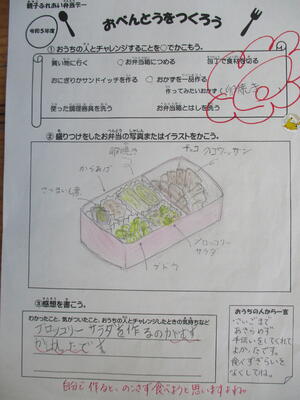 親子ふれあい弁当デー
令和5年度
おべんとうをつくろう
①おうちの人とチャレンジすることを○でかこもう。
買い物に行く
お弁当箱につめる
包丁で食材を切る
おにぎりかサンドイッチを作る
おかずを一品作る
作ってみたいおかず(卵焼き
使った調理器具を洗う
お弁当箱とはしを洗う
②盛りつけをしたお弁当の写真またはイラストをかこう。
卵焼き
チョコクロワッサン
からあげ
さつまいも
ブロッコリーサラダ
ブドウ
③感想を書こう。
わかったこと、気がついたこと、おうちの人とチャレンジしたときの気持ちなど
ブロッコリーサラダを作るのががむず
かしかったです
おうちの人から一言
さいごまで
あきらめず
手伝いをしてくれて
よかったです。
食べずぎらいを
なくしてね。
自分で作ると、のこさず食べようと思いますよね。